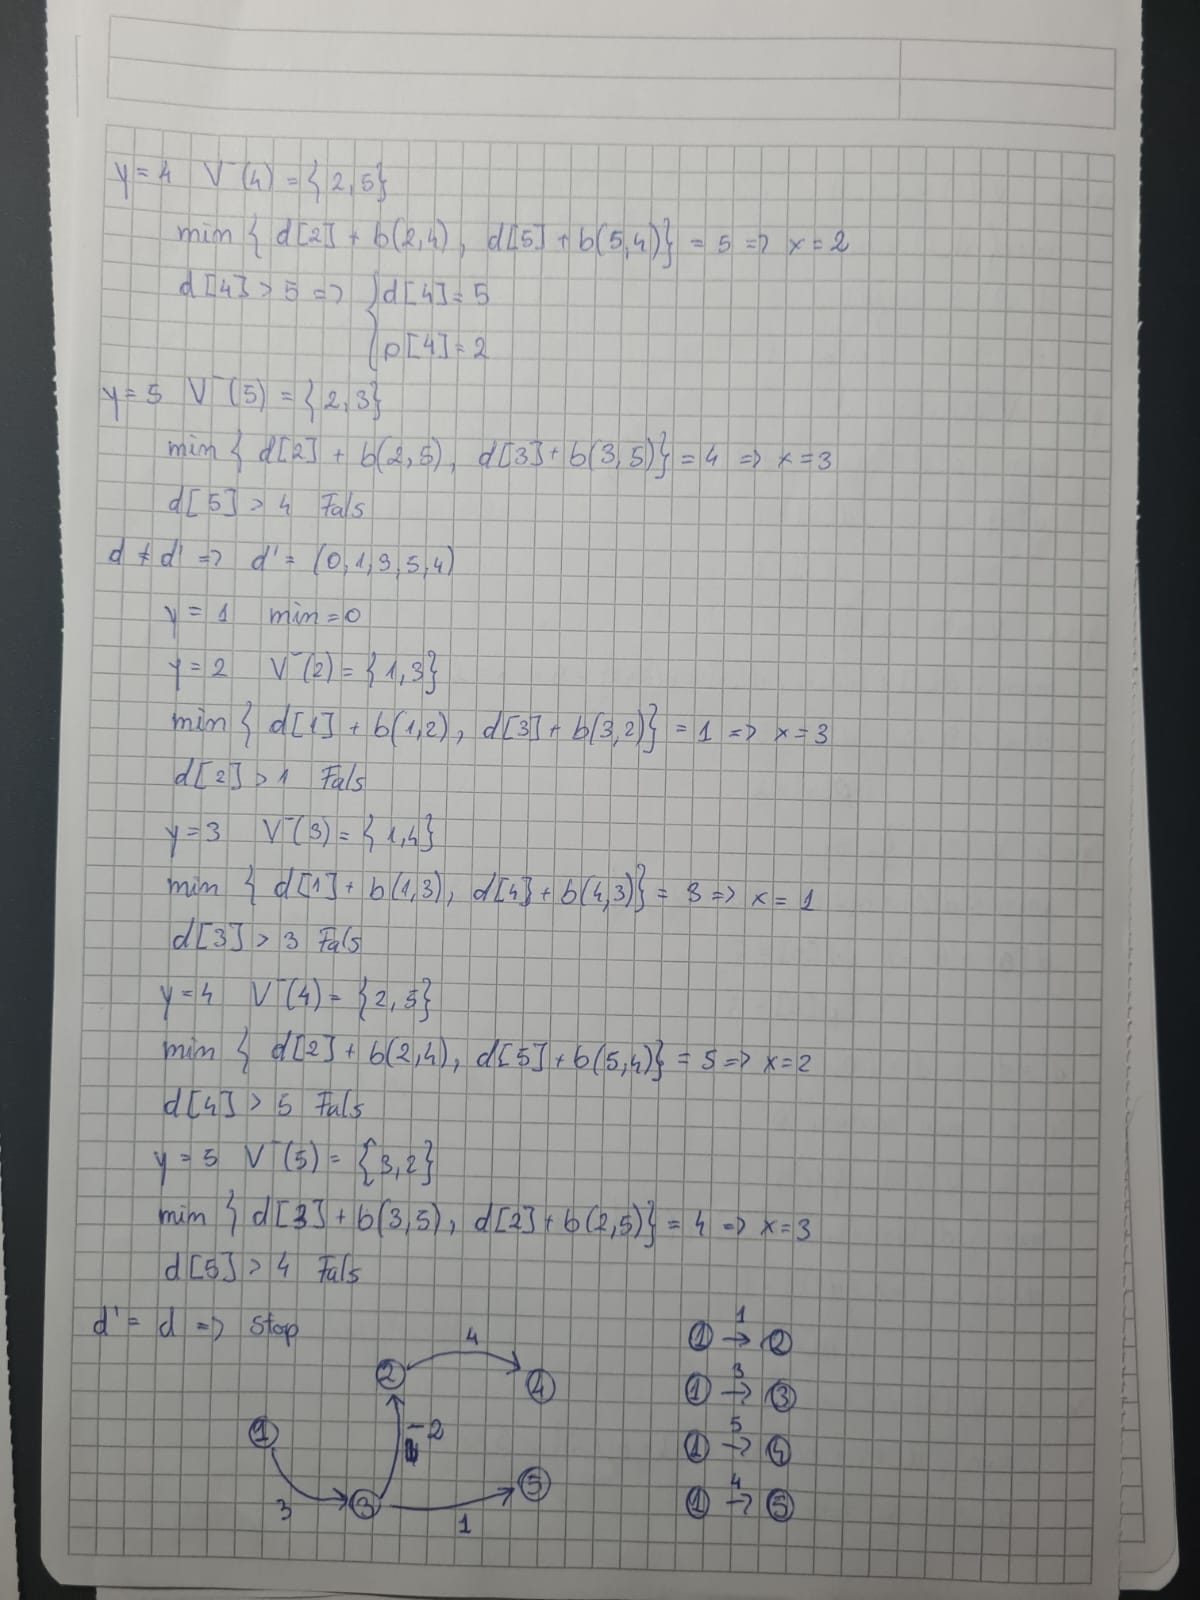 y = 4 V⁻(4) = { 2, 5}
min { d[2] + b(2,4), d[5] + b(5,4)} = 5 => x = 2
d[4] > 5 => { d[4] = 5
p[4] = 2
y = 5 V⁻(5) = { 2, 3}
min { d[2] + b(2,5), d[3] + b(3,5)} = 4 => x = 3
d[5] > 4 Fals
d ≠ d' => d' = (0, 1, 3, 5, 4)
y = 1 min = 0
y = 2 V⁻(2) = { 1, 3}
min { d[1] + b(1,2), d[3] + b(3,2)} = 1 => x = 3
d[2] > 1 Fals
y = 3 V⁻(3) = { 1,4}
min { d[1] + b(1,3), d[4] + b(4,3)} = 3 => x = 1
d[3] > 3 Fals
y = 4 V⁻(4) = {2, 5}
min { d[2] + b(2,4), d[5] + b(5,4)} = 5 => x = 2
d[4] > 5 Fals
y = 5 V⁻(5) = {3, 2}
min { d[3] + b(3,5), d[2] + b(2,5)} = 4 => x = 3
d[5] > 4 Fals
d' = d => Stop
1
1 → 2
3
1 → 3
5
1 → 4
4
1 → 5
4
2
4
1
-2
3
3
5
1